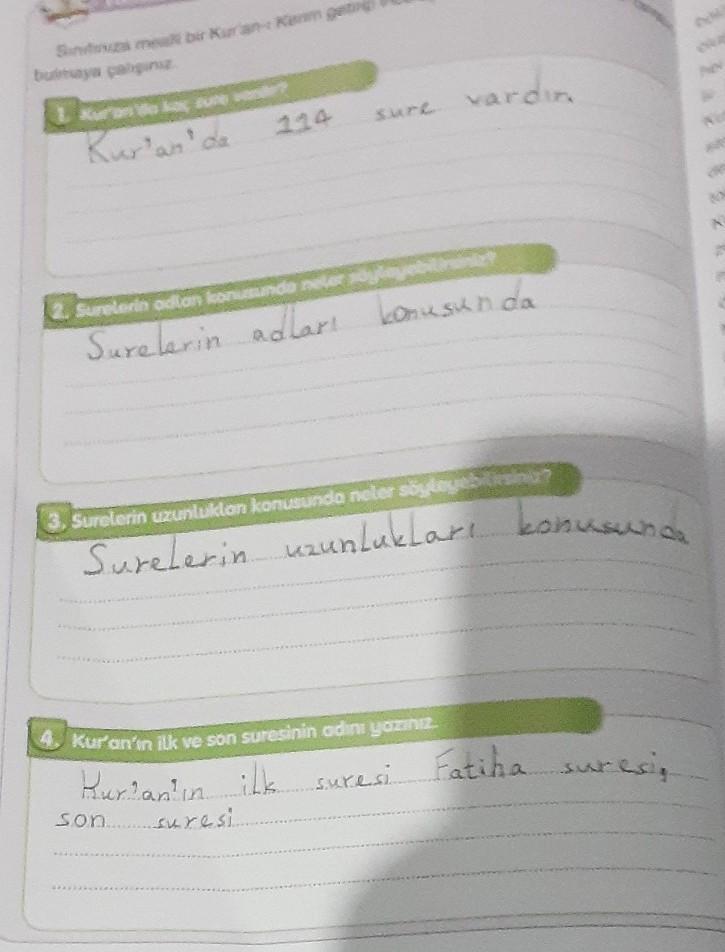 Sınıfınıza mealli bir Kur'an-ı Kerim
bulmaya çalışınız.
1. Kur'an'da kaç sure vardır?
Kur'an'da 114 sure vardır.
2. Surelerin adları konusunda neler söyleyebilirsiniz?
Surelerin adları konusunda
3. Surelerin uzunlukları konusunda neler söyleyebilirsiniz?
Surelerin uzunlukları konusunda
4. Kur'an'ın ilk ve son suresinin adını yazınız.
Kur'an'ın ilk suresi Fatiha suresi,
son suresi